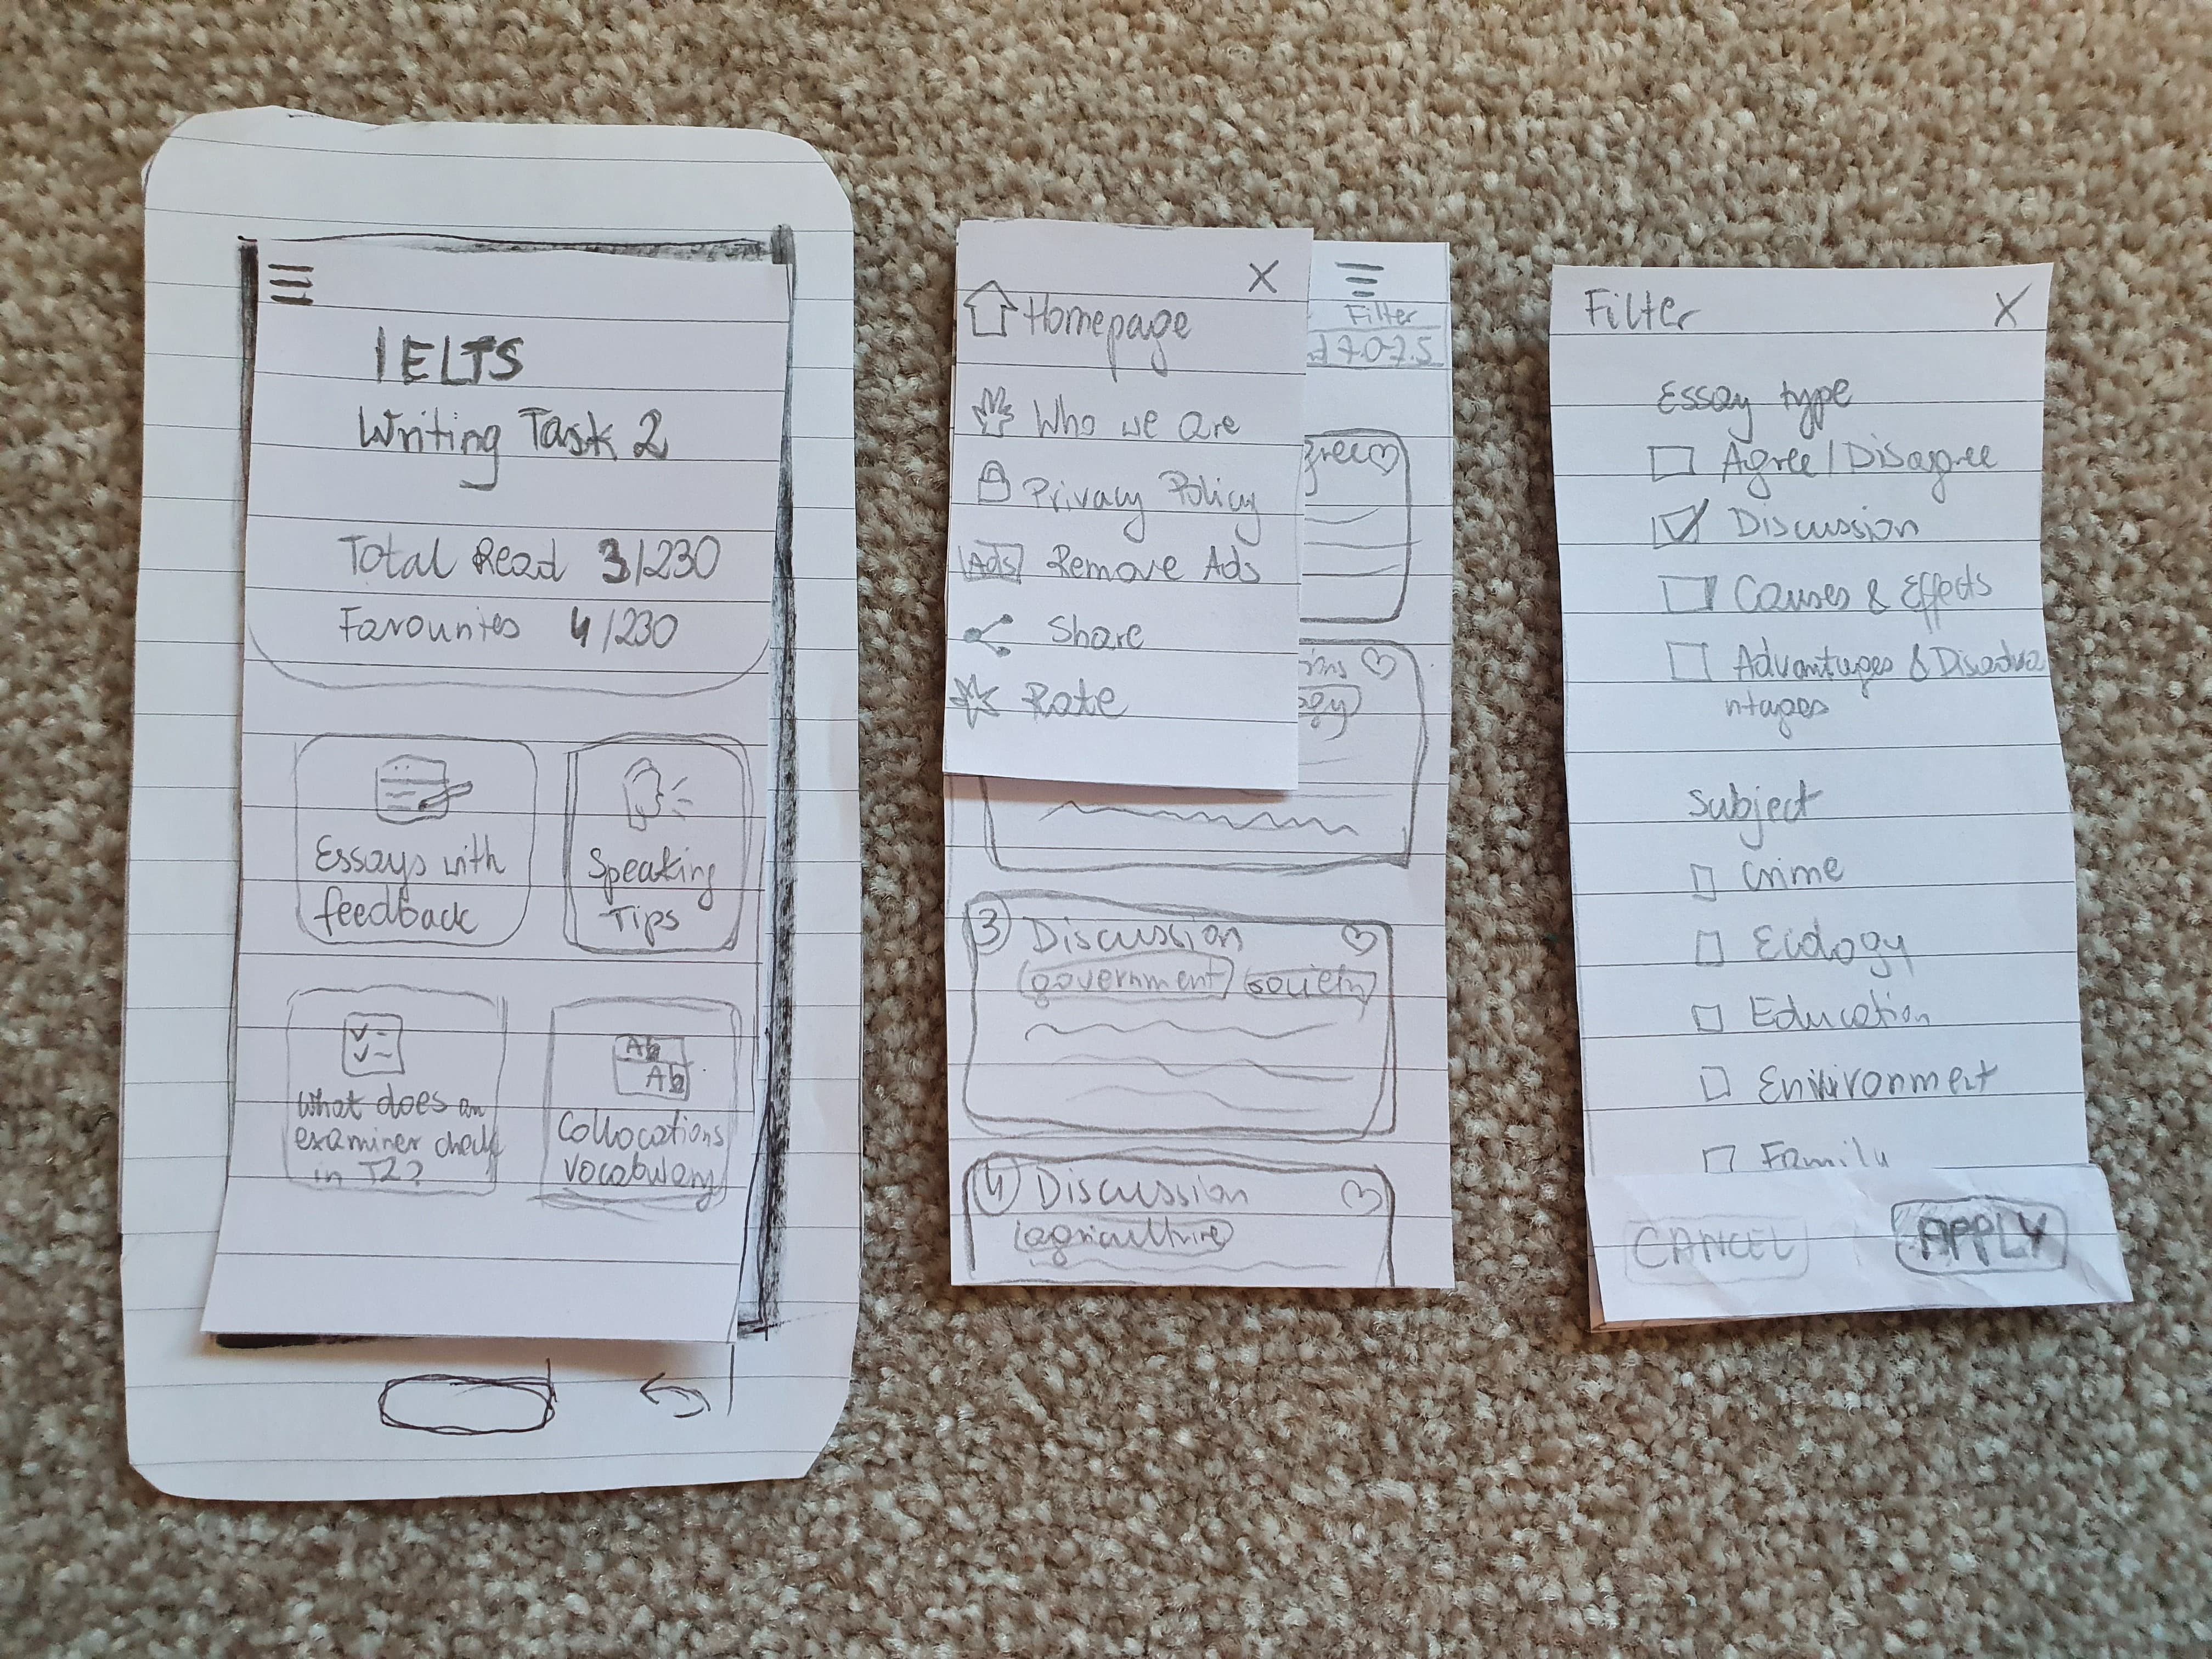 IELTS
Writing Task 2
Total Read 3/230
Favourites 4/230
Essays with
feedback
Speaking
Tips
What does an
examiner check
in T2?
Ab
Ab
Collocations
vocabulary
X
Homepage
Who we are
Privacy Policy
Ads Remove Ads
Share
Rate
Filter
7.0-7.5
3 Discussion
government society
4 Discussion
agriculture
Filter X
Essay type
Agree/Disagree
Discussion
Causes & Effects
Advantages & Disadva
ntages
Subject
Crime
Ecology
Education
Environment
Family
CANCEL APPLY